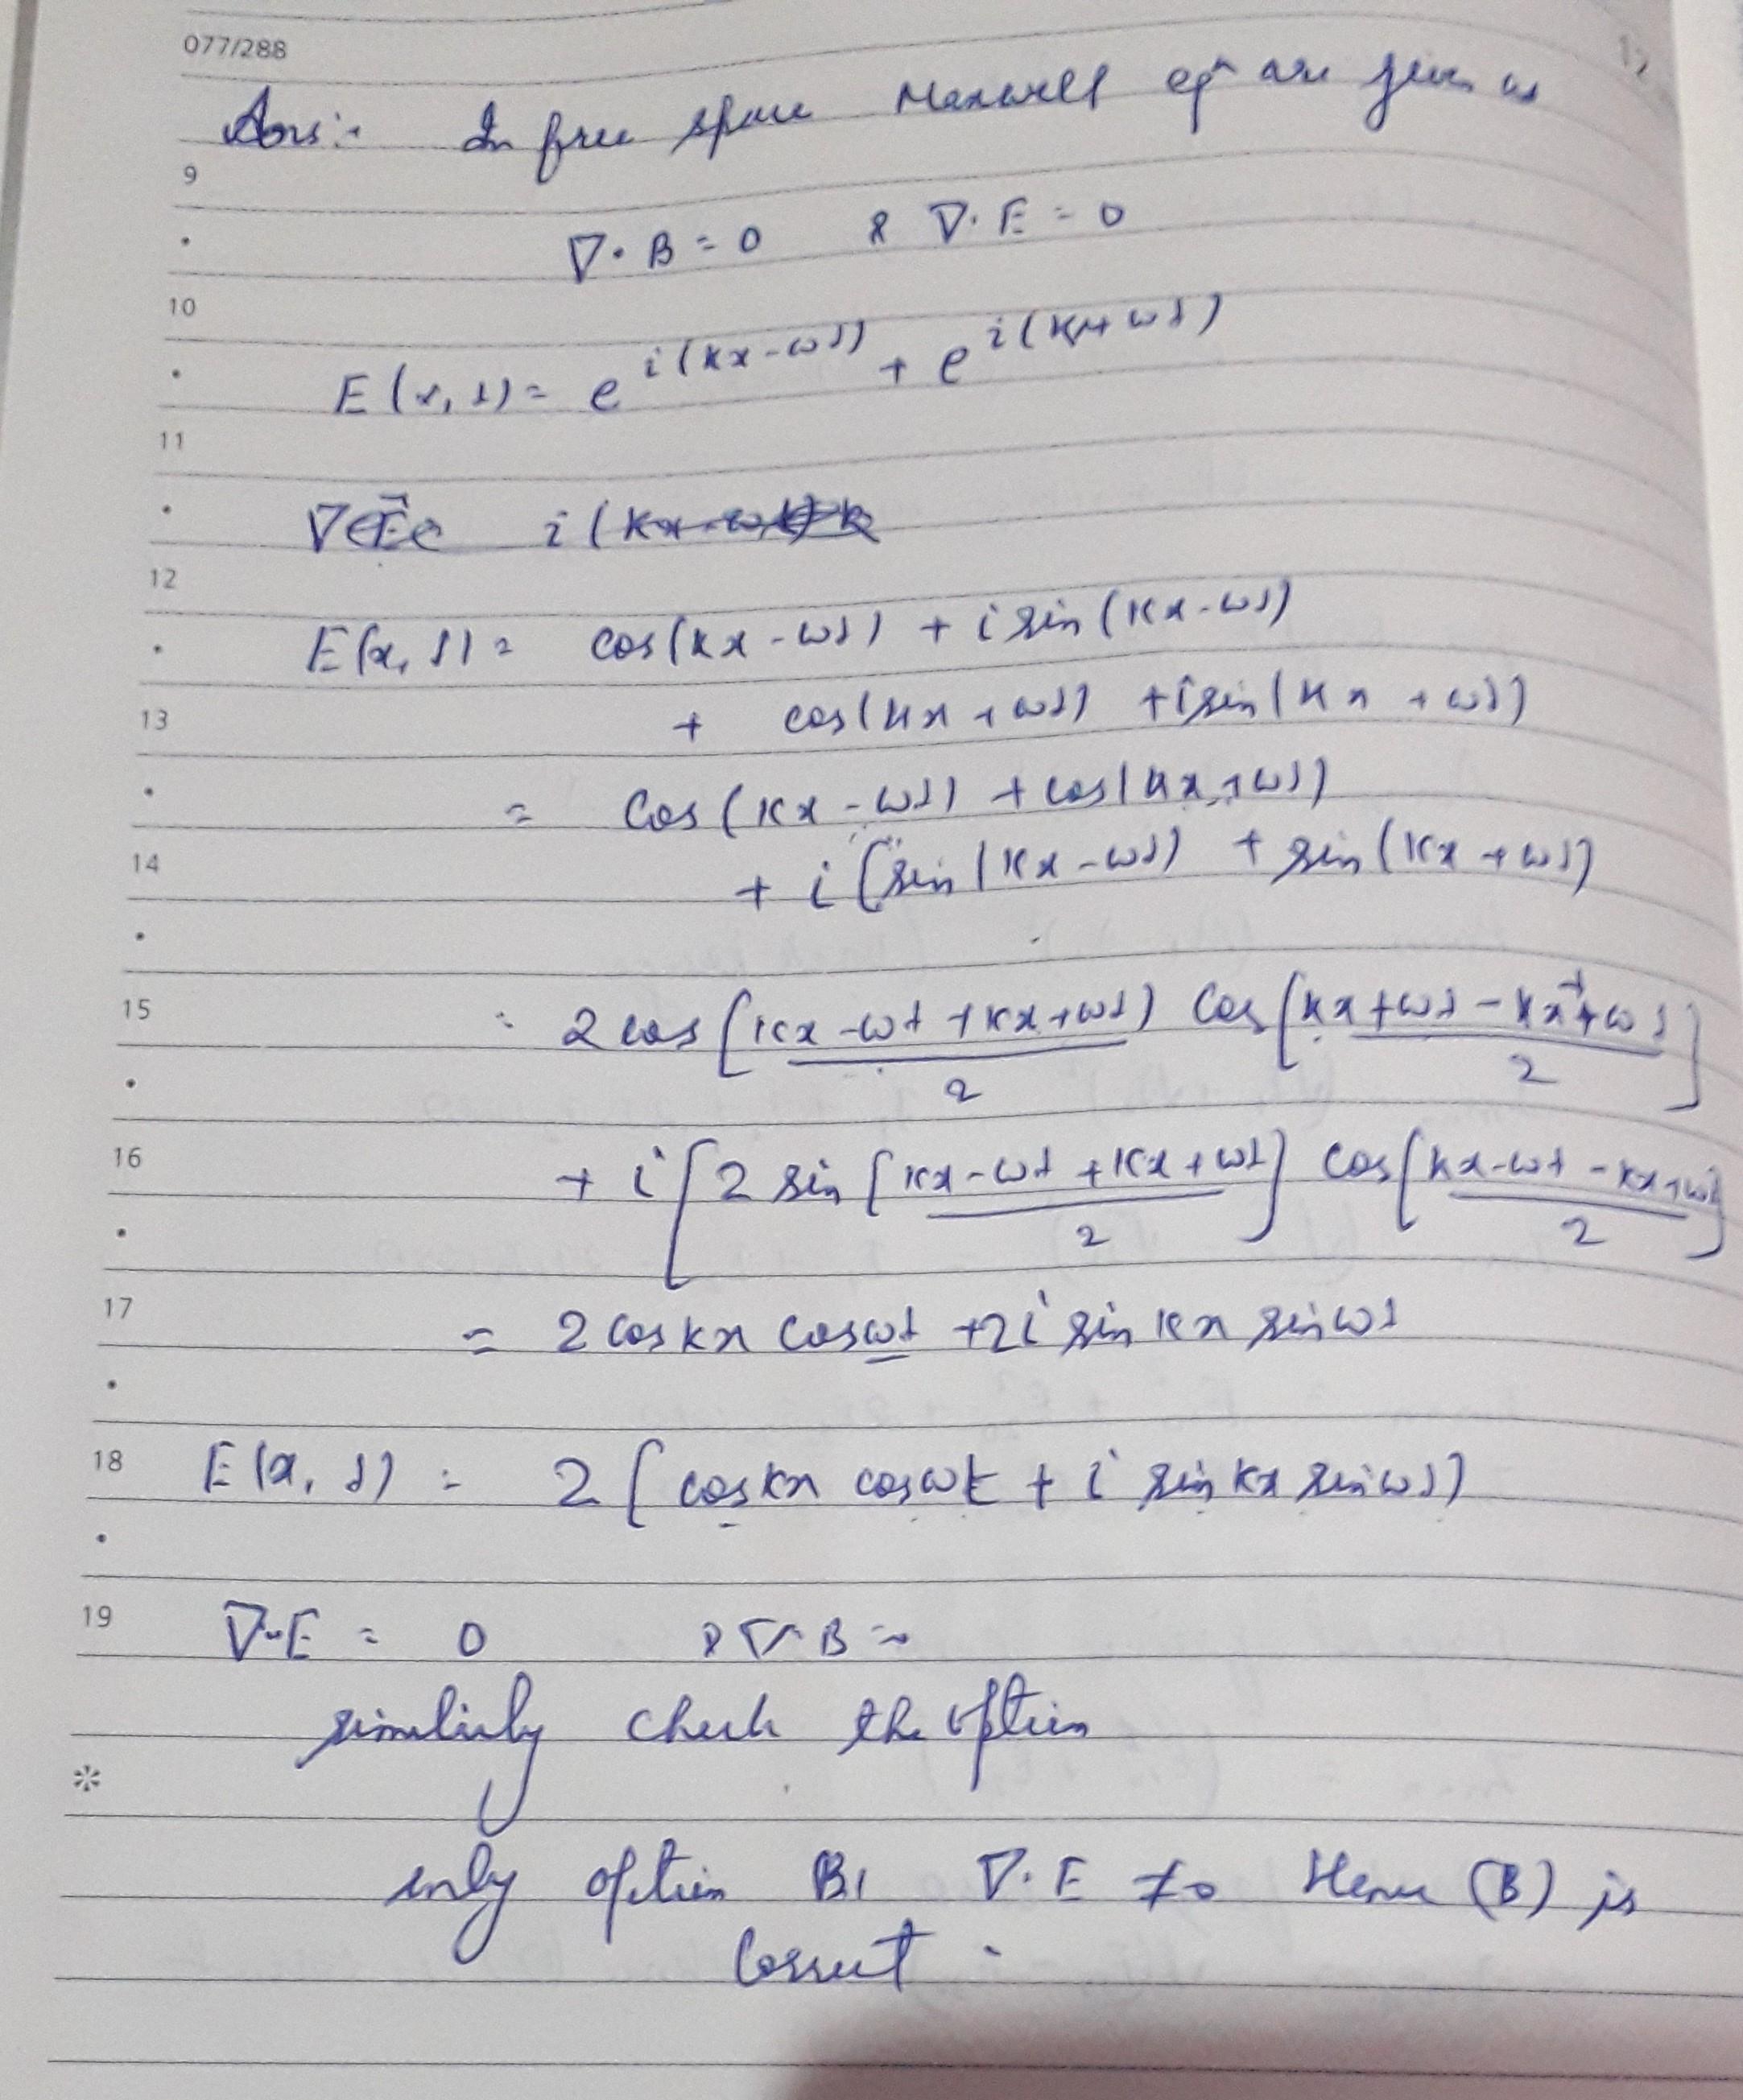 077/288
Ans:- In free space Maxwell eqn are given as
9
∇·B = 0 & ∇·E = 0
10
E(x,t) = e^{i(kx-ωt)} + e^{i(kx+ωt)}
11
i(
12
E(x,t) = cos(kx-ωt) + i sin(kx-ωt)
13
+ cos(kx+ωt) + i sin(kx+ωt)
= cos(kx-ωt) + cos(kx+ωt)
14
+ i (sin(kx-ωt) + sin(kx+ωt)
15
= 2 cos [(kx-ωt+kx+ωt)/2] cos [(kx+ωt-kx+ωt)/2]
16
+ i [2 sin [(kx-ωt+kx+ωt)/2] cos [(kx-ωt-kx+ωt)/2]
17
= 2 cos kx cos ωt + 2i sin kx sin ωt
18
E(x,t) = 2 [cos kx cos ωt + i sin kx sin ωt)
19
∇·E = 0 & ∇·B =
similarly check the option
only option B, ∇·E ≠ 0 Hence (B) is
correct.